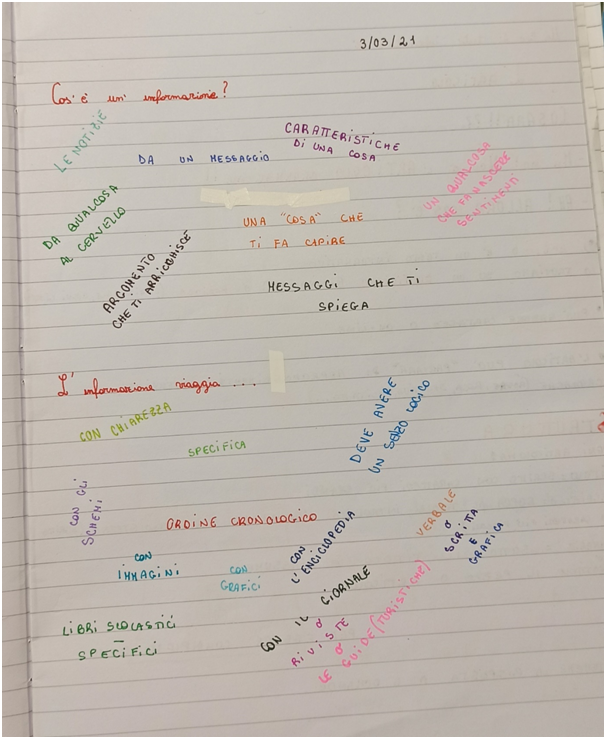 3/03/21
Cos'è un' informazione?
LE NOTIZIE
DA UN MESSAGGIO
CARATTERISTICHE
DI UNA COSA
UN QUALCOSA
CHE FA NASCERE
SENTIMENTI
DA QUALCOSA
AL CERVELLO
UNA "COSA" CHE
TI FA CAPIRE
ARGOMENTO
CHE TI ARRICCHISCE
MESSAGGI CHE TI
SPIEGA
L'informazione viaggia ...
CON CHIAREZZA
SPECIFICA
DEVE AVERE
UN SENSO LOGICO
CON GLI
SCHEMI
ORDINE CRONOLOGICO
VERBALE
O
SCRITTA
E
GRAFICA
CON
IMMAGINI
CON
GRAFICI
CON
L'ENCICLOPEDIA
LIBRI SCOLASTICI
SPECIFICI
CON IL GIORNALE
O
RIVISTE
O
LE GUIDE (TURISTICHE)